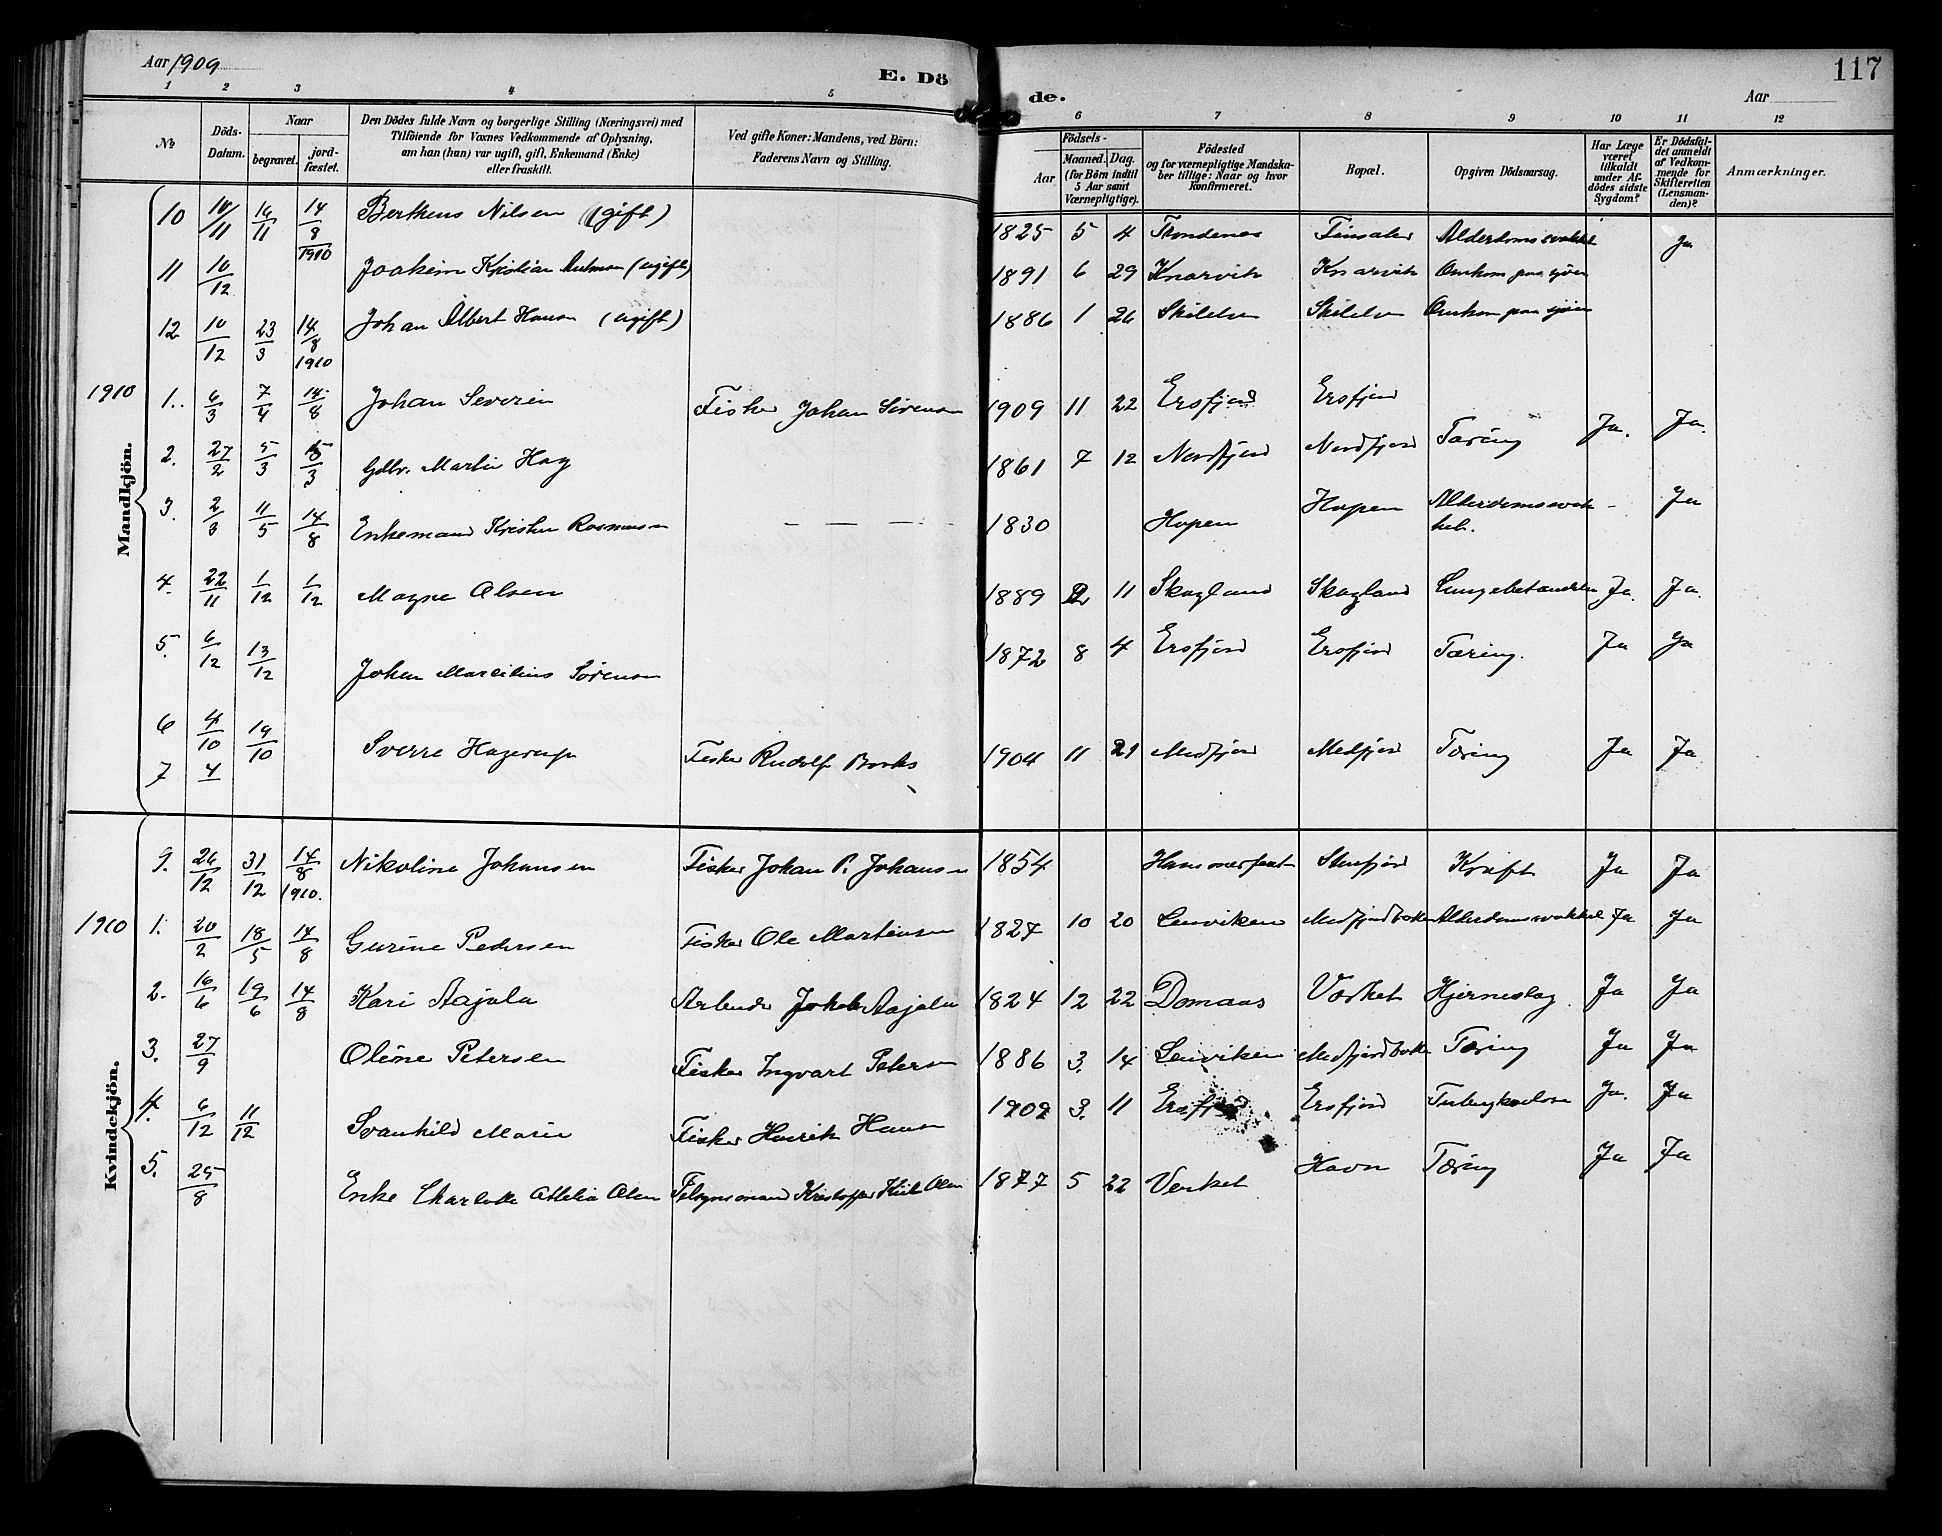 Aar 1909
E. Döde.
Aar
117
1 2 3 4 5 6 7 8 9 10 11 12
No
Döds-Datum.
Naar
begravet.
jordfæstet.
Den Dödes fulde Navn og borgerlige Stilling (Næringsvei) med
Tilföiende for Voxnes Vedkommende af Oplysning,
om han (hun) var ugift, gift, Enkemand (Enke)
eller fraskilt.
Ved gifte Koner: Mandens, ved Börn:
Faderens Navn og Stilling.
Födsels-
Aar
Maaned. Dag.
(for Börn indtil
5 Aar samt
Værnepligtige).
Födested
og for værnepligtige Mandska-
ber tillige: Naar og hvor
konfirmeret.
Bopæl.
Opgiven Dödsaarsag.
Har Læge
været
tilkaldt
under Af-
dödes sidste
Sygdom?
Er Dödsfal-
det anmeldt
af Vedkom-
mende for
Skifteretten
(Lensman-
den)?
Anmærkninger.
Mandkjön.
10 14/8 1910 Bertheus Nilsen (gift) 1825 5 4 Trondenes Alderdomssvakhet Ja
11 10/12 Joakim Kristian (ugift) 1891 6 29 Knarvik Knarvik Omkom paa sjöen
12 10/12 23/3 14/8 1910 Johan Albert Hansen (ugift) 1886 1 26 Omkom paa sjöen
1910
1. 6/3 7/4 14/8 Johan Severin Fisker Johan Sörensen 1909 11 22 Ersfjord Ersfjord
2. 27/2 5/3 Gdbr. Martin Hay 1861 7 12 Nordfjord Nordfjord Tæring Ja. Ja.
3. 2/3 11/5 14/8 Enkemand Kristen Rasmussen — — — 1830 Hopen Hopen Alderdomssvak- - Ja
het.
4. 22/11 1/12 1/12 Magne Olsen 1889 2 11 Skagland Skagland Lungebetændelse Ja. Ja.
5. 6/12 13/12 Johan Marcilius Sörensen 1872 8 4 Ersfjord Ersfjord Tæring. Ja Ja
6 4/10 19/10 Sverre Hagerup Fisker Rudolf 1904 11 21 Medfjord Medfjord Tæring Ja Ja
7 4
Kvindekjön.
9. 26/12 31/12 14/8 1910. Nikoline Johansen Fisker Johan P. Johansen 1854 Hammerfest Stenfjord Kræft Ja Ja
1910
1. 20/2 18/5 14/8 Gurine Pedersen Fisker Ole Martinsen 1827 10 20 Lenviken Medfjordbotn Alderdomssvakhet Ja Ja
2. 16/6 19/6 14/8 Kari Aajala Arbeider Aajala 1824 12 22 Domaas Værket Hjerneslag. Ja Ja
3. 27/9 Oline Petersen Fisker Ingvart Petersen 1886 3. 14 Lenviken Medfjordbotn Tæring Ja Ja
4. 6/12 11/12 Svanhild Marie Fisker Henrik Hansen 1909 3. 11 Ersfjord Ersfjord Tuberkulose Ja. Ja
5. 25/8 Enke Charlotte Attelia Olsen Kristoffer Olsen 1877 5 22 Verket Havn Tæring Ja Ja